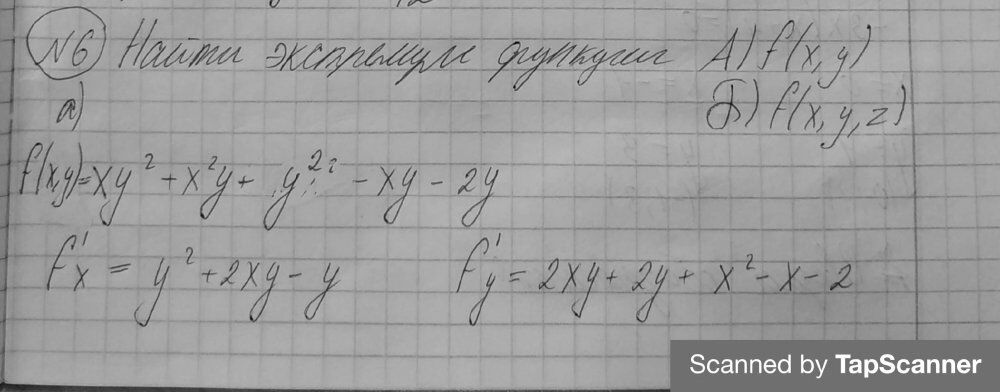 №6 Найти экстремум функции А) f(x,y)
а) Б) f(x,y,z)
f(x,y)=xy²+x²y+ y² -xy-2y
f'x = y²+2xy-y f'y = 2xy+2y+ x²-x-2
Scanned by TapScanner